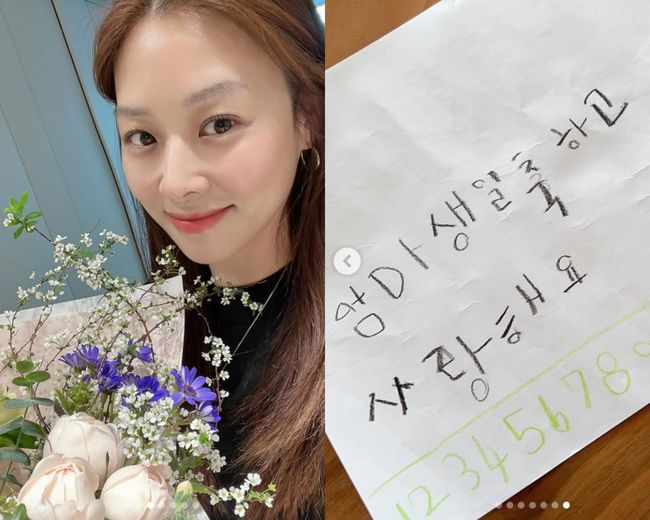 엄마 생일축하고
사랑해요
12345678